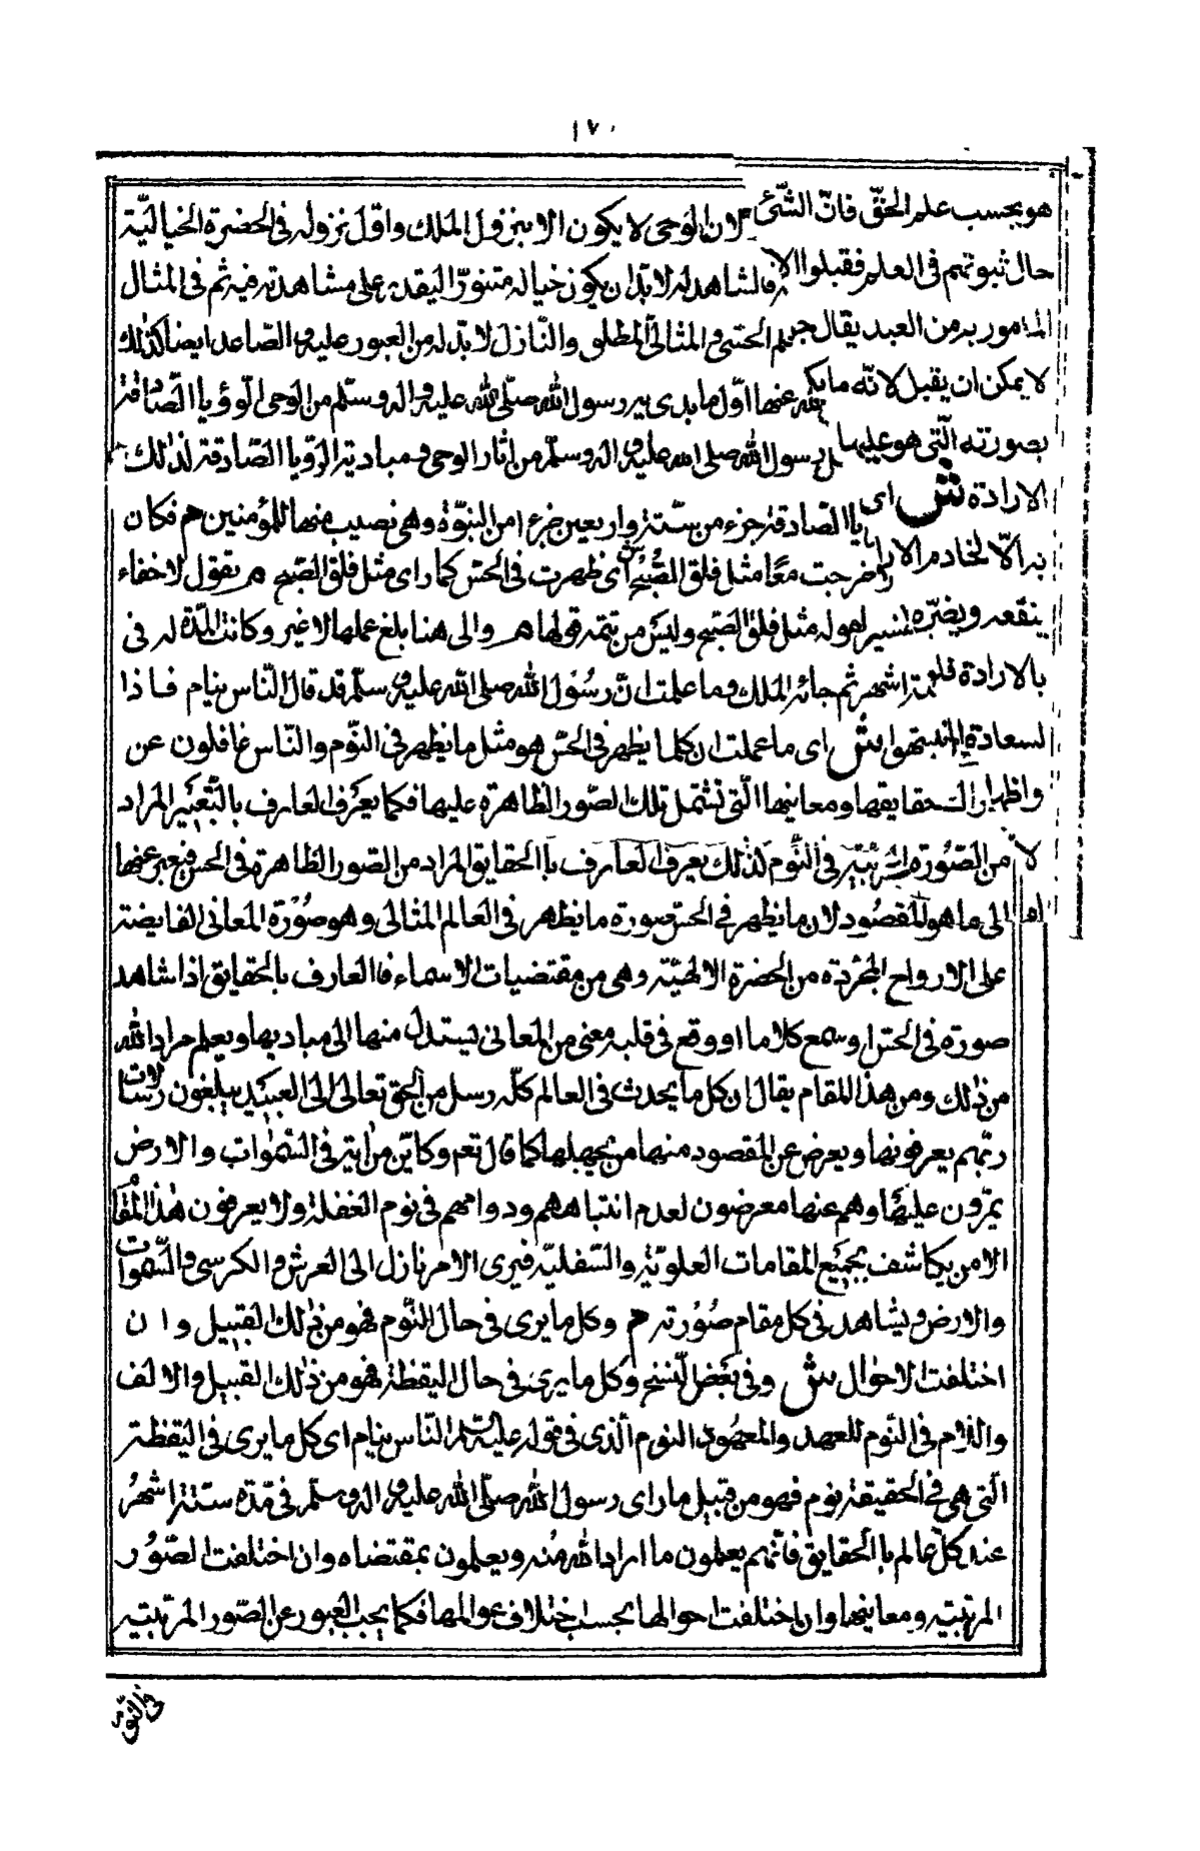 ١٧٠
هو بحسب علم الحقّ فانّ الشّئ لان الوحى لا يكون الا بنزول الملك واوّل نزوله فى الحضرة الخياليّة
حال ثبوتهم فى العلم فقبلوا الا فالمشاهد له لا بدّ ان يكون خياله متنوّرا ليقدر على مشاهدته فيه ثم فى المثال
المامور به من العبد يقال الحسّى والمثالى المطلق والنّازل لا بدّ له من العبور عليه والصّاعد ايضا كذلك
لا يمكن ان يقبل لانّه ما يك عنها اوّل ما بدى به رسول الله صلّى الله عليه واله وسلّم من الوحى الرّؤيا الصّادقة
بصورته الّتى هو عليها رسول الله صلى الله عليه واله وسلّم من اثار الوحى ومباديه الرّؤيا الصّادقة لذلك
الارادة ش اى يا الصّادقة جزء من ستّة واربعين جزءا من النبوّة وهى نصيب منها للمؤمنين م فكان
به الّا لخادم الارا خرجت معًا مثل فلق الصّبح ش اى ظهرت فى الحسّ كما راى مثل فلق الصّبح م يقول لا خفاء
ينفعه ويضرّه مثل فلق الصّبح وليس من تتمّه قولها م والى هنا بلغ علمها لا غير وكانت المدّة له فى
بالارادة فلو ستّة اشهر ثم جائه الملك وما علمت انّ رسول الله صلى الله عليه وسلّم قد قال النّاس نيام فاذا
لسعادة انتبهوا ش اى ما علمت ان كلما يظهر فى الحسّ هو مثل ما يظهر فى النّوم والنّاس غافلون عن
واظهار حقايقها ومعانيها الّتى تشتمل تلك الصّور الظاهرة عليها فكما يعرف العارف بالتّعبير المراد
لا من الصّورة المرئيّة فى النّوم كذلك يعرف العارف بالحقايق المراد من الصّور الظاهرة فى الحس فيعبر عنها
الى ما هو المقصود لان ما يظهر فى الحسّ صورة ما يظهر فى العالم المثالى وهو صورة المعانى الفايضة
على الارواح المجرّدة من الحضرة الالهيّة وهى من مقتضيات الاسماء فالعارف بالحقايق اذا شاهد
صورة فى الحسّ او سمع كلاما او وقع فى قلبه معنى من المعانى يستدل منها الى مباديها ويعلم مراد الله
من ذلك ومن هذا المقام يقال ان كل ما يحدث فى العالم كلّه رسل من الحق تعالى الى العبيد يبلغون رسالات
ربّهم يعرفونها ويعرض عن المقصود منها من يجهلها كما قال تعم وكايّن من اية فى السّموات والارض
يمرّون عليها وهم عنها معرضون لعدم انتباههم ودوامهم فى نوم الغفلة ولا يعرفون هذا المقا
الا من يكاشف بجميع المقامات العلويّة والسّفليّة فيرى الامر نازل الى العرش والكرسى والسّموات
والارض ويشاهد فى كل مقام صورته م وكل ما يرى فى حال النّوم فهو من ذلك القبيل وان
اختلفت الاحوال ش وفى بعض النّسخ وكل ما يرى فى حال اليقظة فهو من ذلك القبيل والالف
واللام فى النّوم للعهد والمعهود النوم الّذى فى قوله عليه السّلم النّاس نيام اى كل ما يرى فى اليقظة
الّتى هى فى الحقيقة نوم فهو من قبيل ما راى رسول الله صلّى الله عليه واله وسلّم فى مدّة ستّة اشهر
عند كل عالم بالحقايق فانّهم يعلمون ما اراد الله منه ويعملون بمقتضاه وان اختلفت الصّور
المرئيّة ومعانيها وان اختلفت احوالها بحسب اختلاف عوالمها فكما يجب العبور عن الصّور المرئيّة
فى النّوم